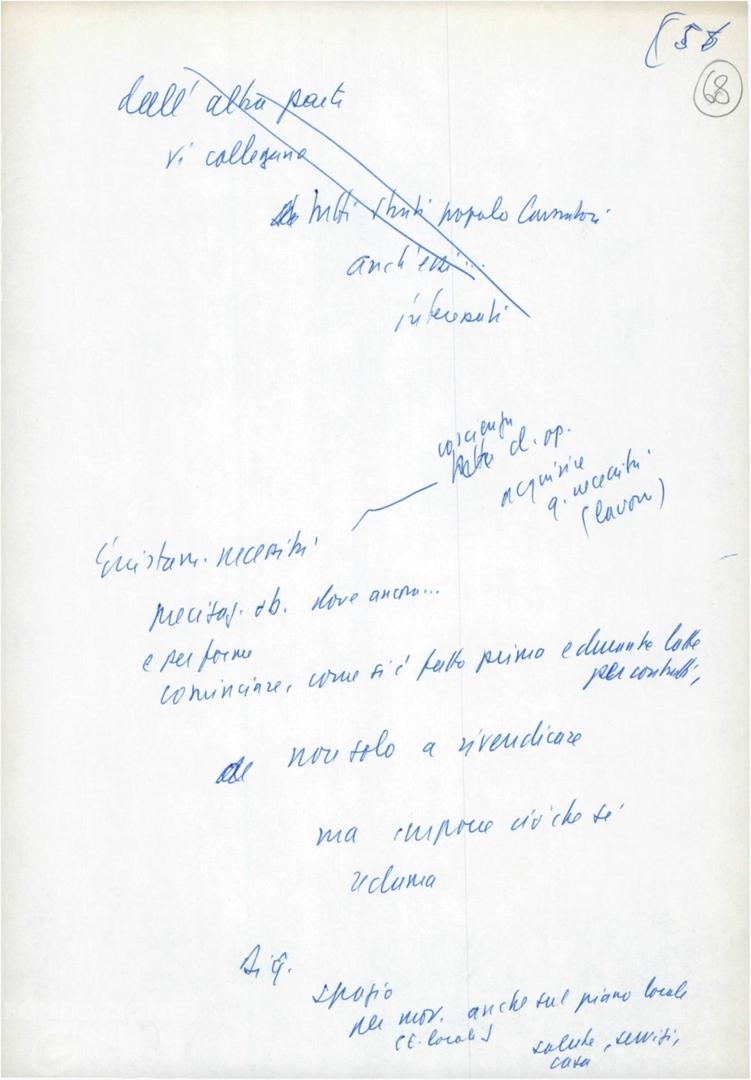 (58
68
dall'altra parte
vi collegano
tutti strati popolo lavoratori
anch'essi...
interessati
coscienza
lotta cl. op.
acquisire
q. necessità
(lavori)
necessità
dove ancora...
e per forme
cominciare, come si è fatto prima e durante lotte
per contratti,
non solo a rivendicare
ma imporre ciò che si
reclama
Sig.
spazio
per mov. anche sul piano locale
(E. locali)
salute, servizi,
casa